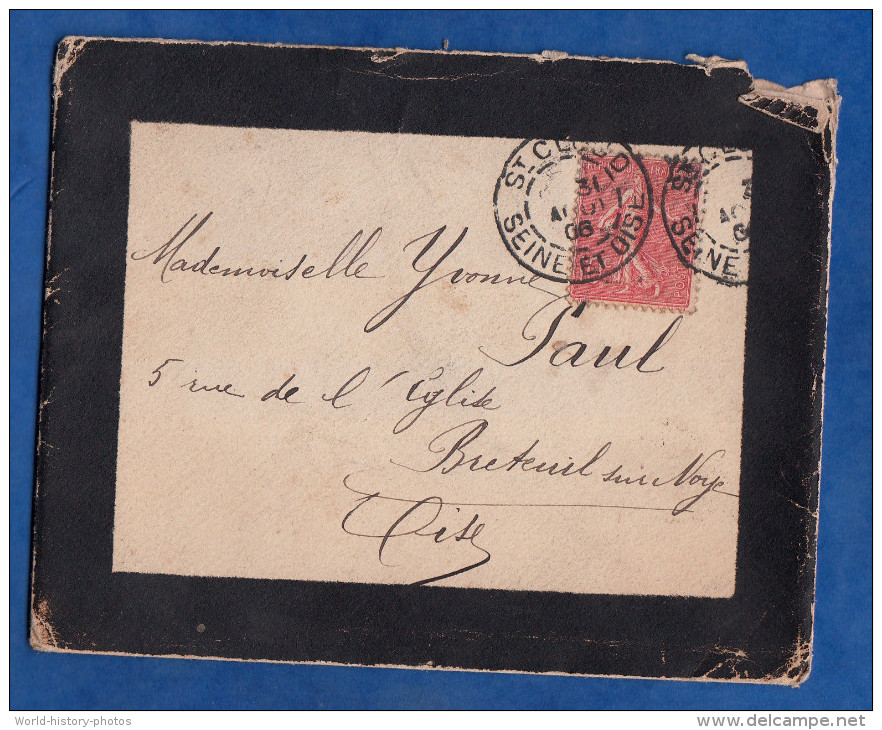 Mademoiselle Yvonne
Paul
5 rue de l'Eglise
Breteuil sur Noye
Oise
St C
31
AOUT
06
SEINE ET OISE
St C
SEINE
World-history-photos
www.delcampe.net